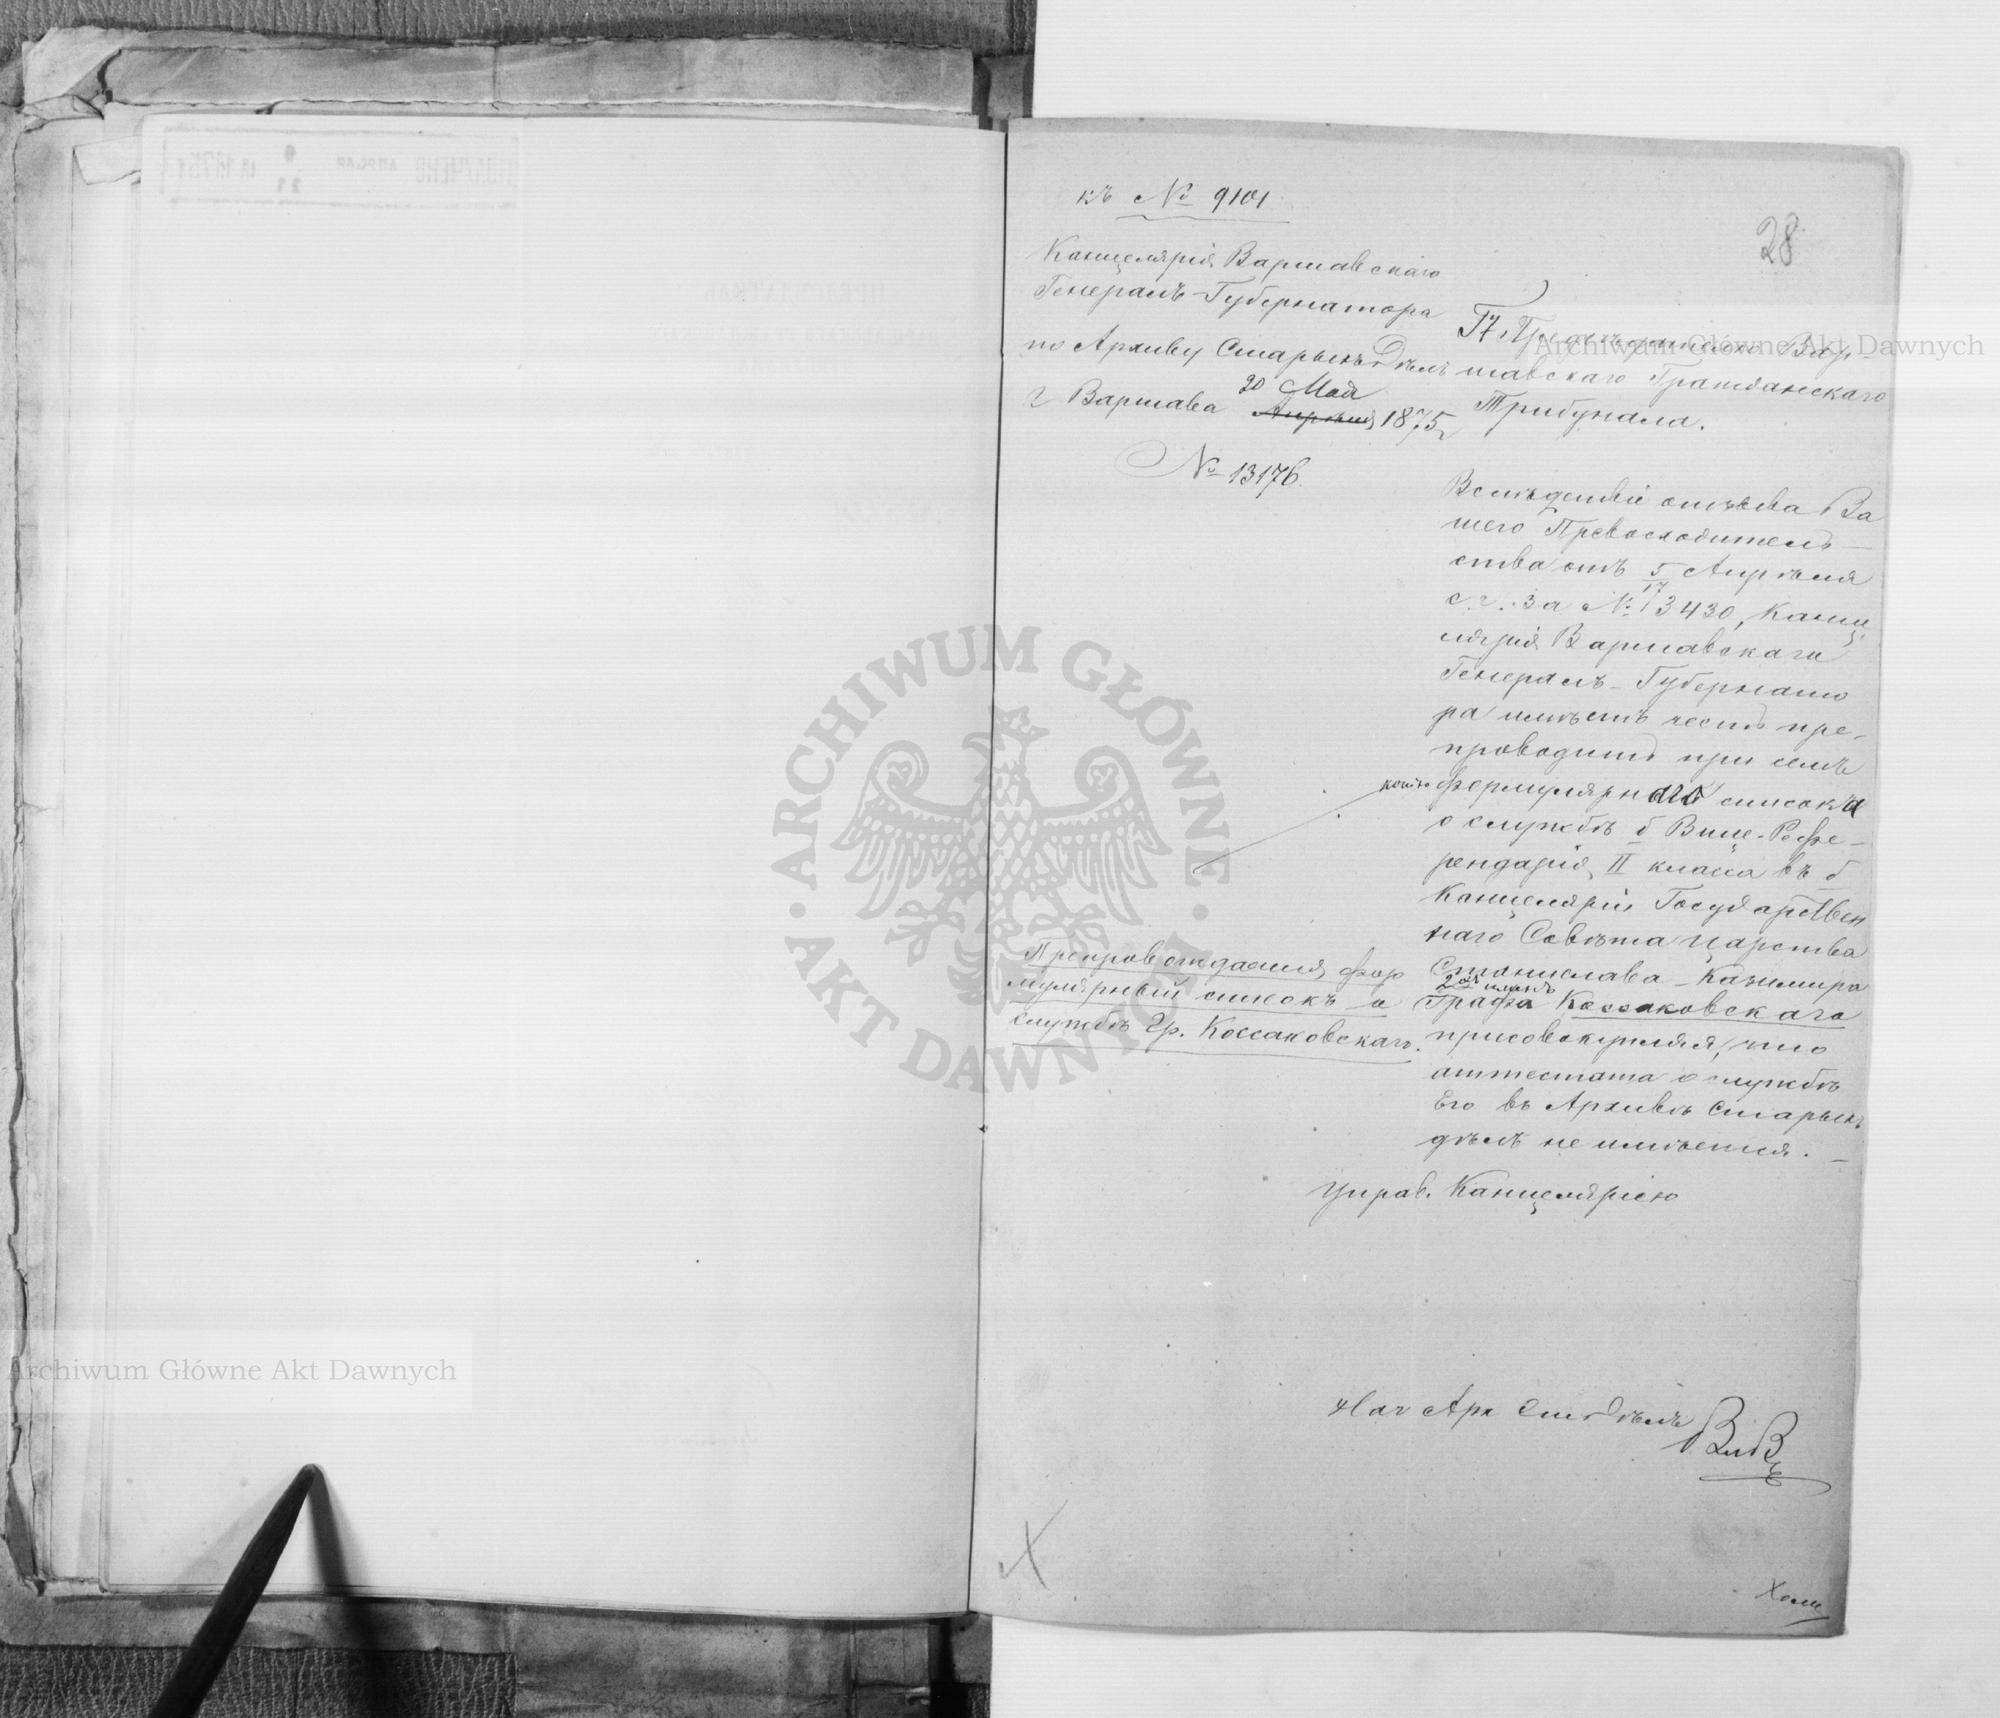 къ № 9101
28
Канцелярія Варшавскаго
Генералъ-Губернатора
по Архиву Старыхъ Дѣлъ
20 Мая
г Варшава Апрѣля 1875 г
№ 13176.
Г. Предсѣдателю Вар-
шавскаго Гражданскаго
Трибунала.
Вслѣдствіе отзыва Ва
шего Превосходитель-
ства отъ 5/17 Апрѣля
с. г. за № 3430, Канце
лярія Варшавскаго
Генералъ-Губернато
ра имѣетъ честь пре-
проводить при семъ
копію формулярнаго списка
о службѣ б Вице-Рефе-
рендарія II класса въ б
Канцеляріи Государствен
наго Совѣта Царства
Станислава-Казимира
2хъ именъ
Графа Коссаковскаго
присовокупляя, что
аттестата о службѣ
Его въ Архивѣ Старыхъ
дѣлъ не имѣется. –
Препровождается фор
мулярный списокъ о
службѣ Гр. Коссаковскаго.
Управ. Канцеляріею
Нач Арх Ст Дѣлъ
X
ARCHIWUM GŁÓWNE
AKT DAWNYCH
Archiwum Główne Akt Dawnych
Archiwum Główne Akt Dawnych